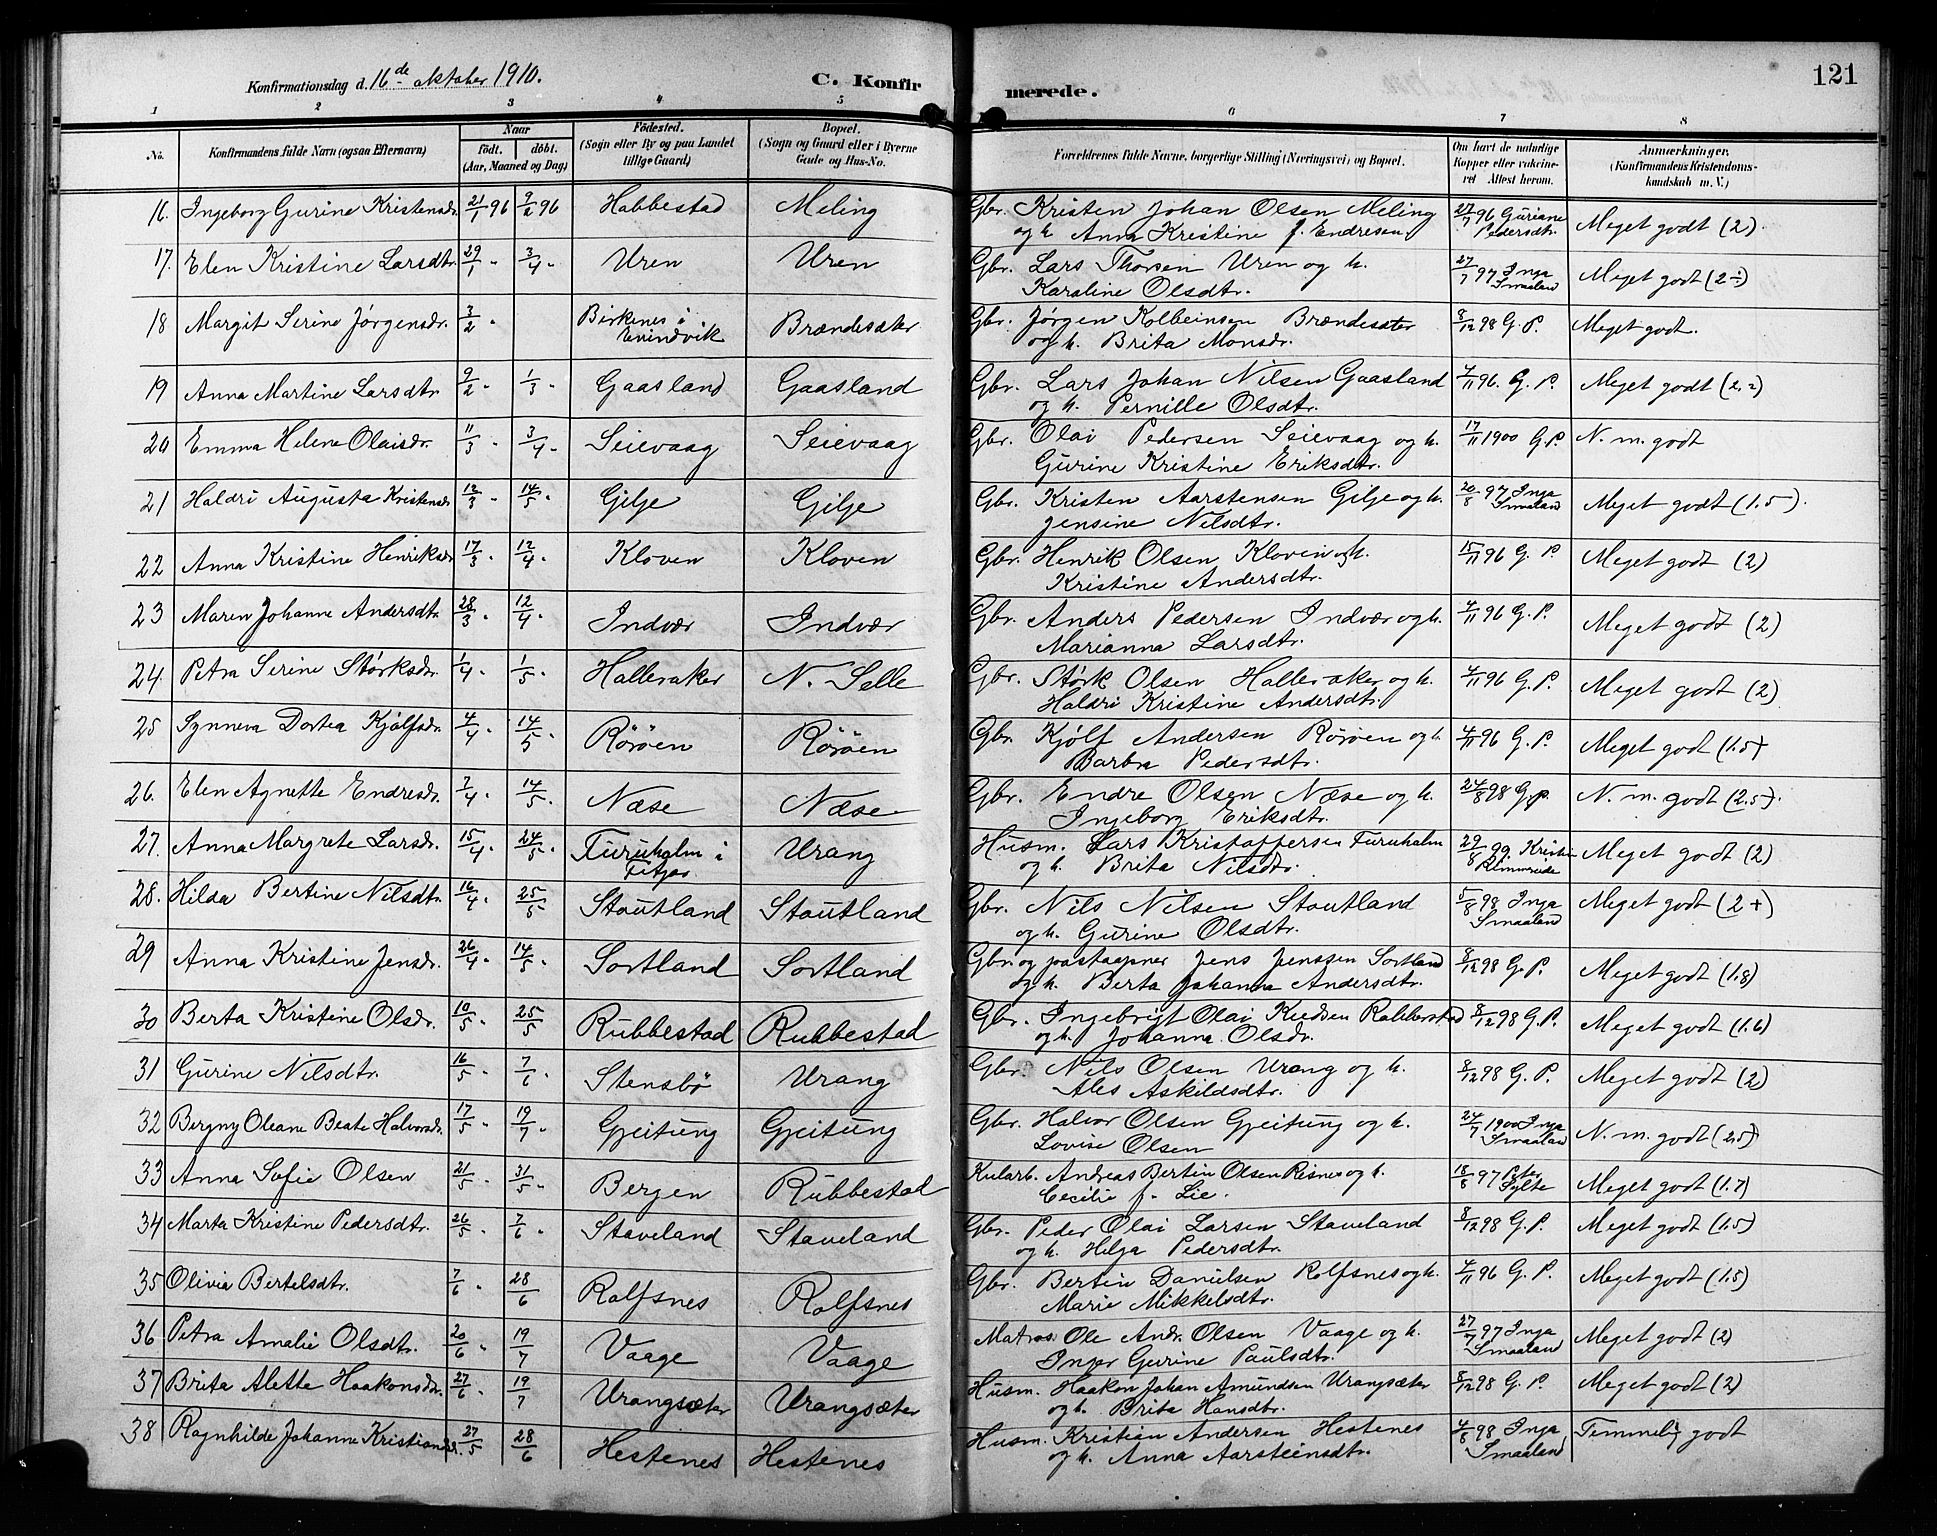 Konfirmationsdag d. 16de oktober 1910.
C. Konfir
merede.
121
1 2 3 4 5 6 7 8
No. Konfirmandens fulde Navn (ogsaa Efternavn) Naar født. døbt. (Aar, Maaned og Dag) Fødested. (Sogn eller By og paa Landet tillige Gaard) Bopæl. (Sogn og Gaard eller i Byerne Gade og Hus-No. Forældrenes fulde Navne, borgerlige Stilling (Næringsvei) og Bopæl. Om havt de naturlige Kopper eller vakcineret Attest herom. Anmærkninger. (Konfirmandens Kristendomskundskab m. V.)
16. Ingeborg Gurine Kristensdr. 21/1 96 9/2 96 Habbestad Meling Gbr. Kristen Johan Olsen Meling 27/7 96 Guriane Pedersdtr. Meget godt (2)
og h. Anna Kristine f. Endresen
17. Elen Kristine Larsdtr. 29/1 " 3/4 " Uren Uren Gbr. Lars Thorsen Uren og h. 27/7 97 Inga Smaaland Meget godt (2÷)
Karoline Olsdtr.
18 Margit Serine Jørgensdr. 3/2 " Birkenes i Evindvik Brændesæter Gbr. Jørgen Kolbeinsen Brændesæter 8/12 98 G. P. Meget godt.
og h. Brita Monsdr.
19 Anna Martine Larsdtr. 9/2 " 1/3 " Gaasland Gaasland Gbr. Lars Johan Nilsen Gaasland 4/11 96. G. P. Meget godt (2,2)
og h. Pernille Olsdtr.
20 Emma Helene Olaisdr. 11/3 " 3/4 " Seievaag Seievaag Gbr. Olai Pedersen Seievaag og h. 17/11 1900 G. P. N. m. godt
Gurine Kristine Eriksdtr.
21 Haldri Augusta Kristensdr. 12/3 " 14/5 " Gilje Gilje Gbr. Kristen Aarstensen Gilje og h. 20/8 97 Inga Smaaland Meget godt (1.5)
Jensine Nilsdtr.
22 Anna Kristine Henriksdr 17/3 " 12/4 " Kloven Kloven Gbr. Henrik Olsen Kloven og h. 15/11 96 G. P. Meget godt (2)
Kristine Andersdtr.
23 Maren Johanne Andersdtr. 28/3 " 12/4 " Indvær Indvær Gbr. Anders Pedersen Indvær og h. 4/11 96 G. P. Meget godt (2)
Marianna Larsdtr.
24. Petra Serine Størksdr. 1/4 " 1/5 " Halleraker N. Selle Gbr. Størk Olsen Halleraker og h. 4/11 96 G. P. Meget godt (2)
Haldri Kristine Andersdtr.
25 Synneva Dortea Kjølfsdr. 4/4 " 14/5 " Rørøen Rørøen Gbr. Kjølf Andersen Rørøen og h. 4/11 96 G. P. Meget godt (1.5)
Barbra Pedersdtr.
26. Elen Agnette Endresdr. 7/4 " 14/5 " Næse Næse Gbr. Endre Olsen Næse og h. 24/8 98 G. P. N. m. godt (2.5)
Ingeborg Eriksdtr.
27. Anna Margrete Larsdr. 15/4 " 24/5 " Furuholm i Fitjar Urang Husm. Lars Kristoffersen Furuholm 29/8 99 Kristi Meget godt (2)
og h. Brita Nilsdtr.
28. Hilda Bertine Nilsdtr. 16/4 " 25/5 Stoutland Stoutland Gbr. Nils Nilsen Stoutland 5/8 98 Inga Smaaland Meget godt (2+)
og h. Gurine Olsdtr.
29 Anna Kristine Jensdr. 26/4 " 14/5 " Sortland Sortland Gbr. og postaapner Jens Jenssen Sortland 8/12 98 G. P. Meget godt (1.8)
og h. Berta Johanna Andersdtr.
30 Berta Kristine Olsdr. 10/5 " 25/5 Rubbestad Rubbestad Gbr. Ingebrigt Olai Knudsen Rubbestad 8/12 98 G. P. Meget godt (1.6)
og h. Johanna Olsdr.
31 Gurine Nilsdtr. 16/5 " 7/6 " Stensbø Urang Gbr. Nils Olsen Urang og h. 8/12 98 G. P. Meget godt (2)
Ales Askildsdtr.
32 Bergny Oleane Beate Halvorsdr. 17/5 " 19/7 " Gjeitung Gjeitung Gbr. Halvor Olsen Gjeitung og h. 24/7 1900 Inga Smaaland N. m. godt (2.5)
Lovise Olsen
33 Anna Sofie Olsen 21/5 " 31/5 " Bergen Rubbestad Kularb. Andreas Bertin Olsen Risnes og h. 18/8 97 Peter Sylte Meget godt (1.7)
Cecilie f. Lie.
34 Marta Kristine Pedersdtr. 26/5 " 7/6 " Staveland Staveland Gbr. Peder Olai Larsen Staveland 8/12 98 G. P. Meget godt (1.5)
og h. Helga Pedersdtr.
35 Olivia Bertelsdtr. 7/6 " 28/6 Rolfsnes Rolfsnes Gbr. Bertin Danielsen Rolfsnes og h. 4/11 96 G. P. Meget godt (1.5)
Marie Mikkelsdtr.
36 Petra Amalie Olsdtr. 20/6 " 19/7 Vaage Vaage Matros Ole Andr. Olsen Vaage og h. 27/7 97 Inga Smaaland Meget godt (2)
Inger Gurine Paulsdtr.
37 Brita Alette Haakonsdr. 27/6 " 19/7 Urangsæter Urangsæter Husm. Haakon Johan Amundsen Urangsæter 8/12 98 G. P. Meget godt (2)
og h. Brita Hansdtr.
38 Ragnhilde Johanne Kristiansdr. 27/5 28/6 Hestenes Hestenes Husm. Kristian Andersen Hestenes 4/8 98 Inga Smaaland Temmelig godt
og h. Anna Aarsteinsdtr.